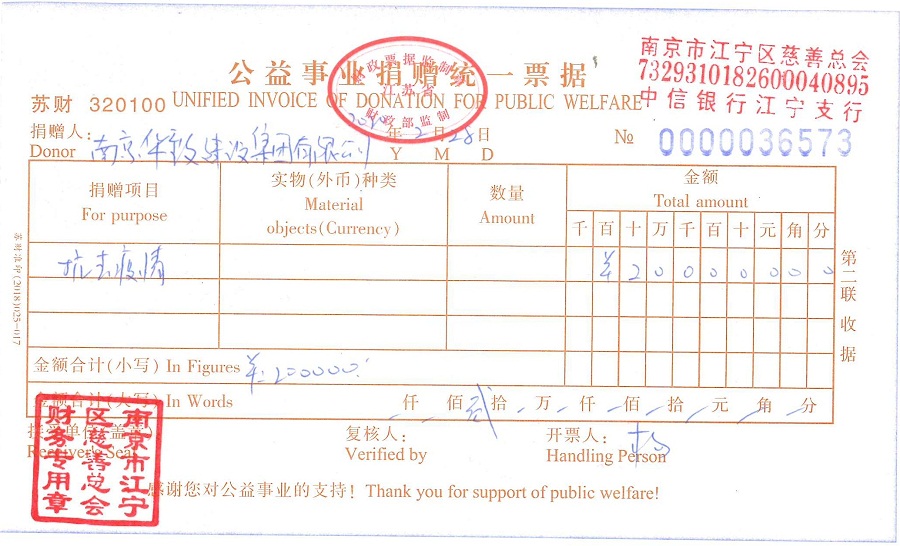 公益事业捐赠统一票据
UNIFIED INVOICE OF DONATION FOR PUBLIC WELFARE
苏财 320100
南京市江宁区慈善总会
7329310182600040895
中信银行江宁支行
财政票据监制
江苏省
财政部监制
捐赠人: 南京华致建设集团有限公司
Donor
年 2 月 28 日
Y M D
№ 0000036573
捐赠项目
For purpose
实物(外币)种类
Material
objects(Currency)
数量
Amount
金额
Total amount
千 百 十 万 千 百 十 元 角 分
抗击疫情 ¥ 2 0 0 0 0 0 0 0
金额合计(小写) In Figures ¥:200000.
金额合计(大写) In Words 仟 佰 贰 拾 万 仟 佰 拾 元 角 分
接受单位(盖章):
Receiver's Seal
复核人:
Verified by
开票人:
Handling Person
感谢您对公益事业的支持! Thank you for support of public welfare!
南京市江宁
区慈善总会
财务专用章
第二联 收据
苏财准印(2018)025-017